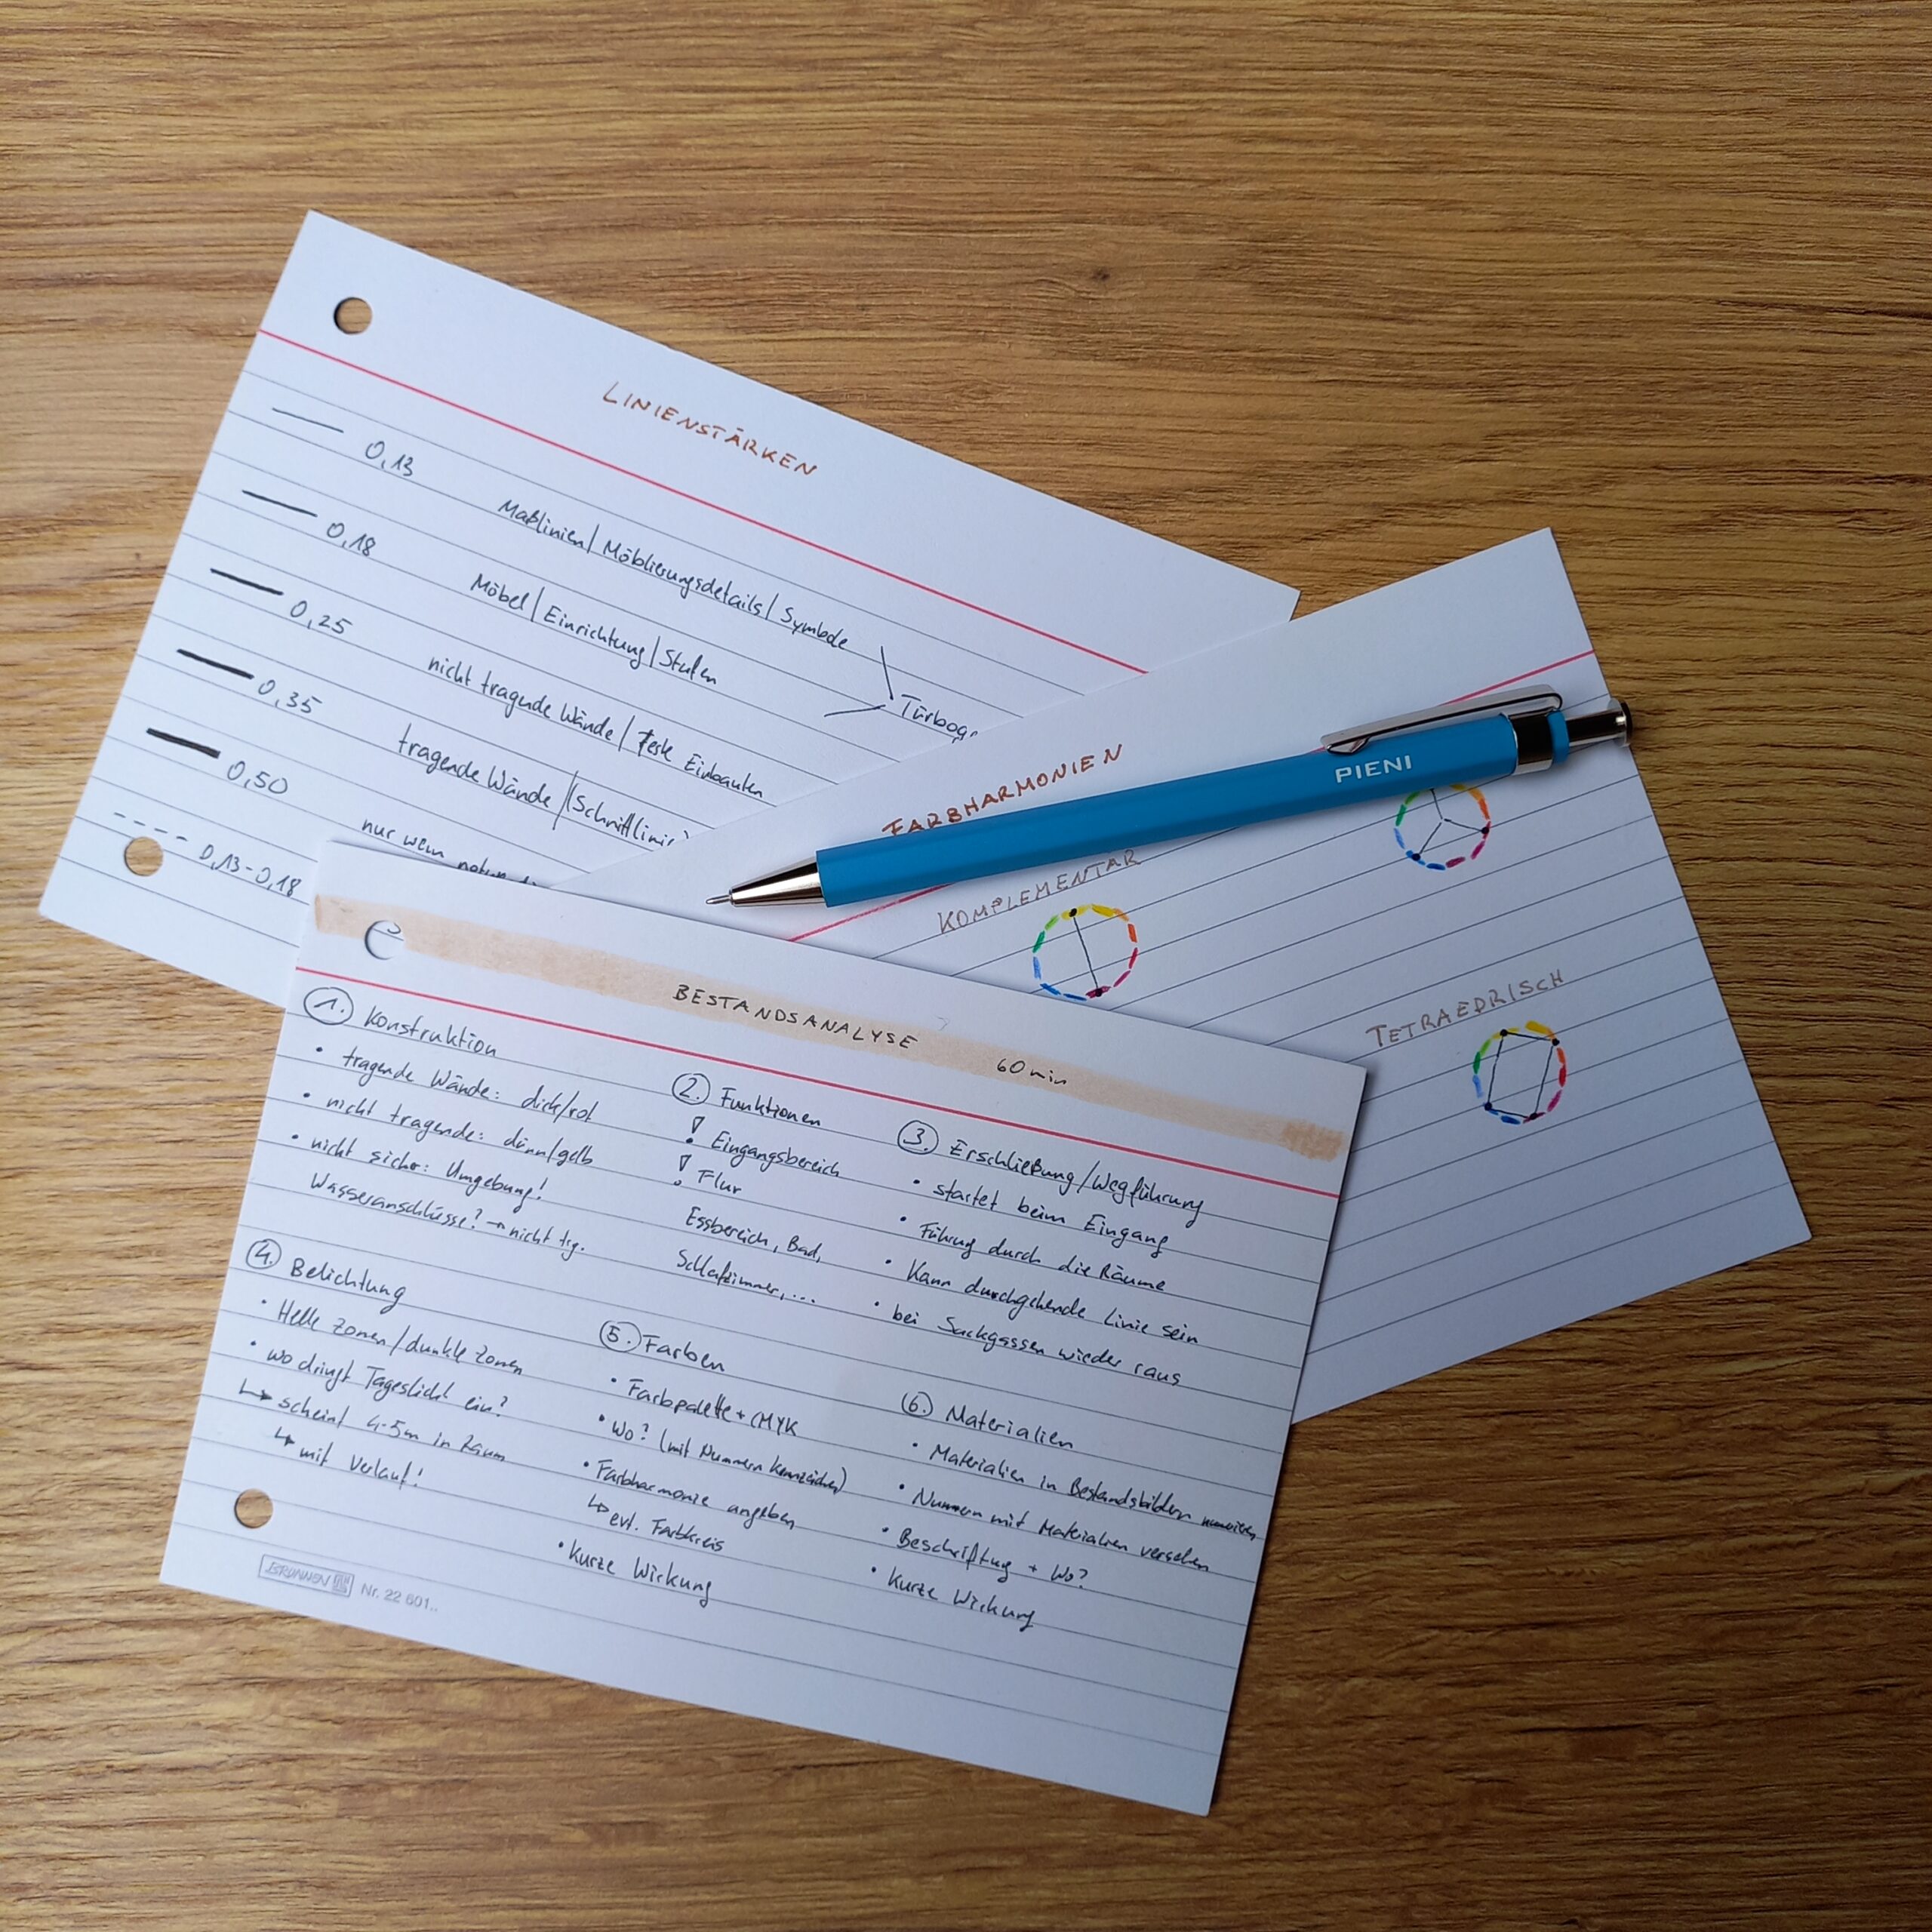 LINIENSTÄRKEN
0,13 Maßlinien/Möblierungsdetails/Symbole
0,18 Möbel/Einrichtung/Stufen
Türbog
0,25 nicht tragende Wände/feste Einbauten
0,35 tragende Wände/(Schnittlinie)
0,50 nur wenn
0,13-0,18
FARBHARMONIEN
PIENI
KOMPLEMENTÄR
TETRAEDRISCH
BESTANDSANALYSE 60 min
1. Konstruktion
• tragende Wände: dick/rot
• nicht tragende: dünn/gelb
• nicht sicher: Umgebung!
Wasseranschlüsse? → nicht trg.
2. Funktionen
! Eingangsbereich
! Flur
Essbereich, Bad,
Schlafzimmer,...
3. Erschließung/Wegführung
• startet beim Eingang
• Führung durch die Räume
• Kann durchgehende Linie sein
• bei Sackgassen wieder raus
4. Belichtung
• Helle Zonen/dunkle Zonen
• wo dringt Tageslicht ein?
↳ scheint 4-5m in Raum
↳ mit Verlauf!
5. Farben
• Farbpalette + CMYK
• Wo? (mit Nummern kennzeichen)
• Farbharmonie angeben
↳ evt. Farbkreis
• Kurze Wirkung
6. Materialien
• Materialien in Bestandsbildern
• Nummern mit Materialien versehen
• Beschriftung + Wo?
• Kurze Wirkung
BRUNNEN Nr. 22 601..